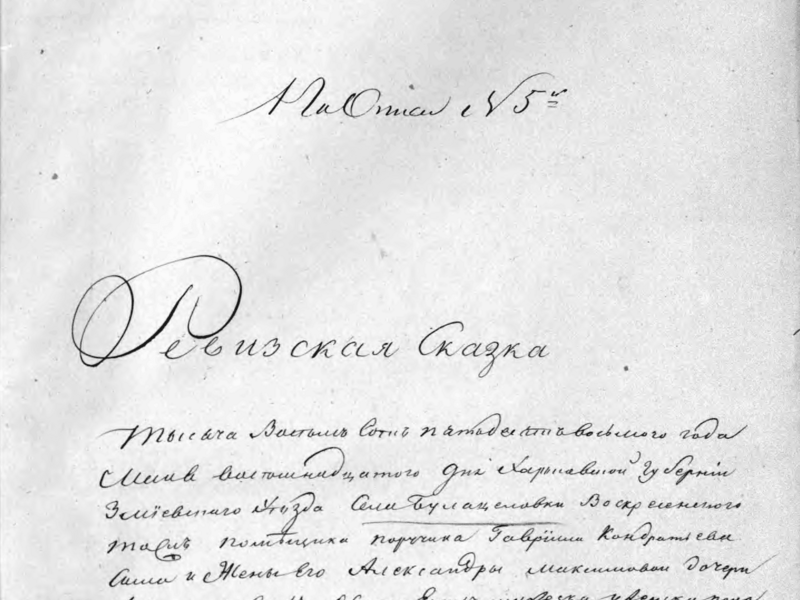 По Описи N 5й
Ревизская Сказка
Тысяча Восемь Сотъ пятдесятъ восьмого года
Маия восемнадцатого дня Харьковской Губернїи
Змїевского Уѣзда Села Булацеловки Воскресенского
тожъ помѣщика поручика Гаврїила Кондратьева
Сына и Жены Его Александры Максимовой дочери